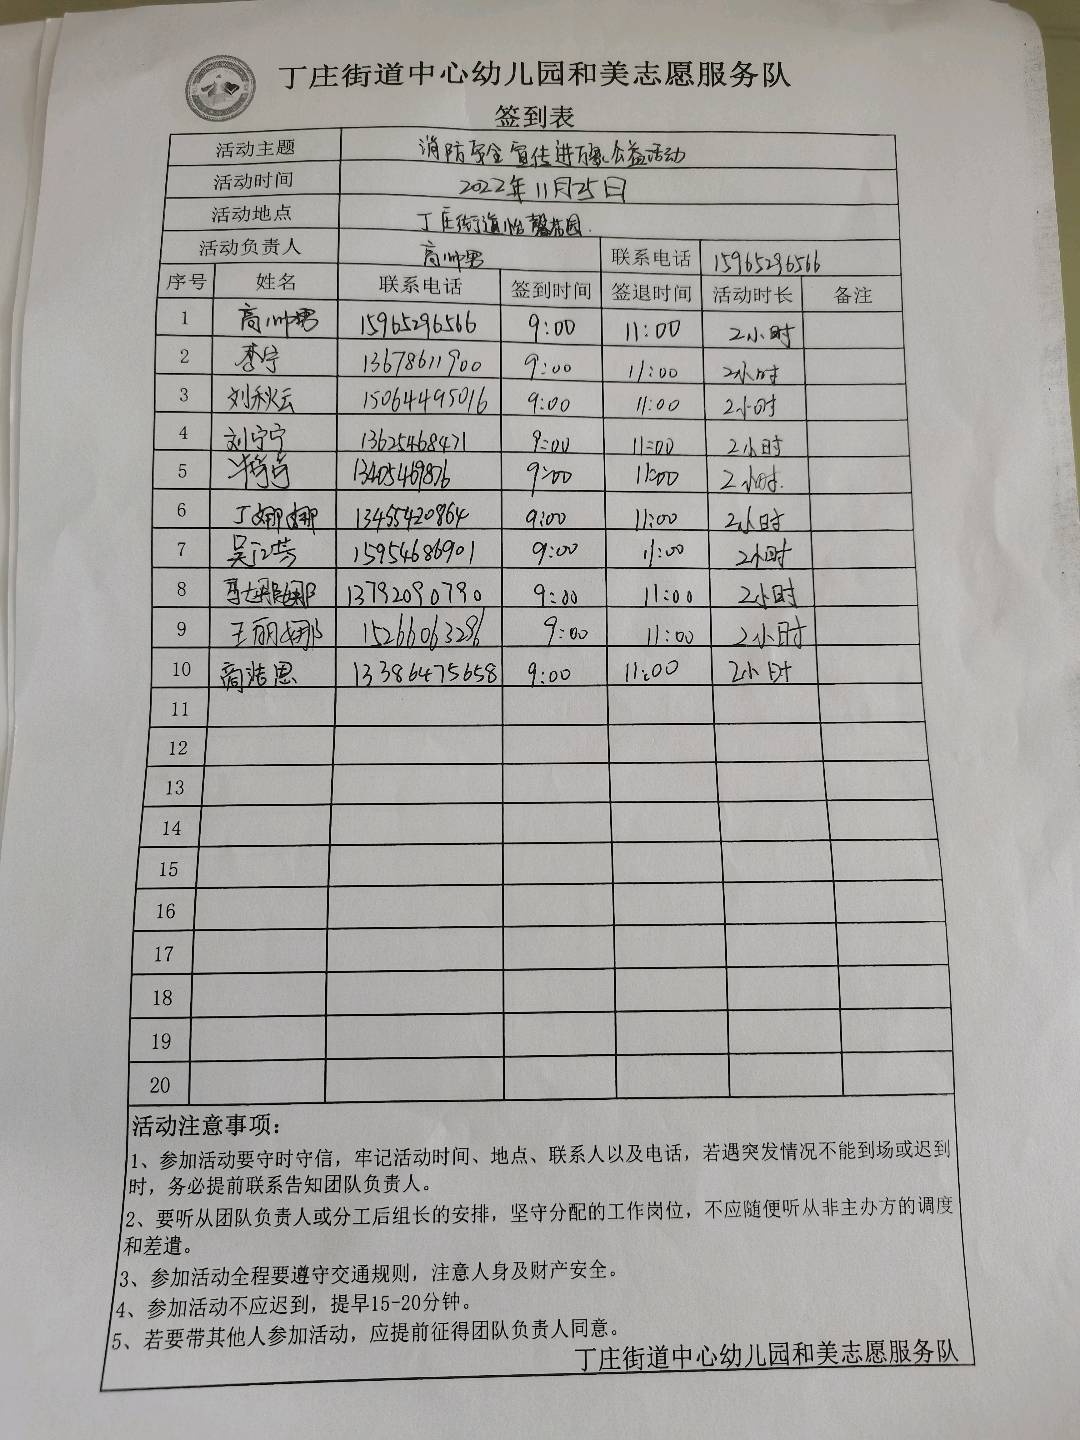 丁庄街道中心幼儿园和美志愿服务队
签到表
活动主题 消防安全宣传进万家公益活动
活动时间 2022年11月25日
活动地点 丁庄街道怡馨花园.
活动负责人 高帅男 联系电话 15965296566
序号 姓名 联系电话 签到时间 签退时间 活动时长 备注
1 高帅男 15965296566 9:00 11:00 2小时
2 李宁 13678611900 9:00 11:00 2小时
3 刘秋云 15064495016 9:00 11:00 2小时
4 刘宁宁 13625468471 9:00 11:00 2小时
5 13405469876 9:00 11:00 2小时.
6 丁娜娜 13455420864 9:00 11:00 2小时
7 吴江芸 15954686901 9:00 11:00 2小时
8 马娜娜 13792090790 9:00 11:00 2小时
9 王丽娜 15266063296 9:00 11:00 2小时
10 商洁恩 13386475658 9:00 11:00 2小时
11
12
13
14
15
16
17
18
19
20
活动注意事项：
1、参加活动要守时守信，牢记活动时间、地点、联系人以及电话，若遇突发情况不能到场或迟到
时，务必提前联系告知团队负责人。
2、要听从团队负责人或分工后组长的安排，坚守分配的工作岗位，不应随便听从非主办方的调度
和差遣。
3、参加活动全程要遵守交通规则，注意人身及财产安全。
4、参加活动不应迟到，提早15-20分钟。
5、若要带其他人参加活动，应提前征得团队负责人同意。
丁庄街道中心幼儿园和美志愿服务队